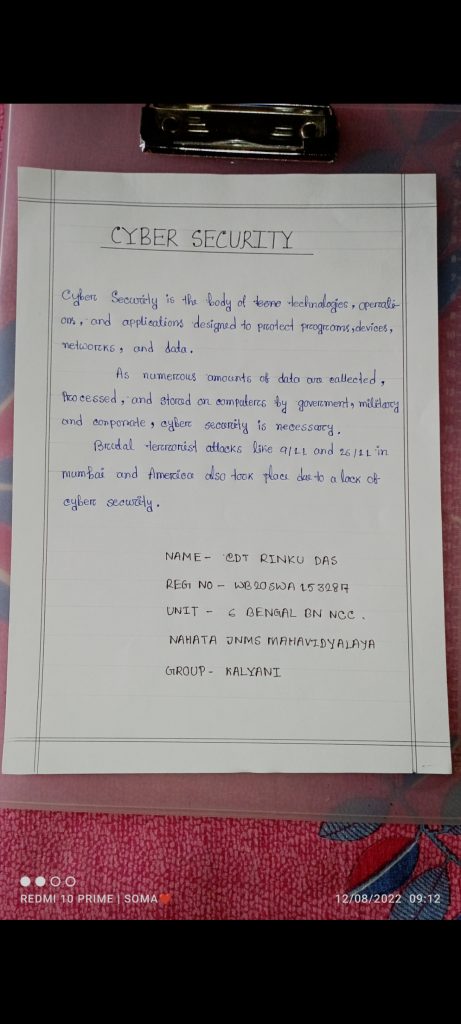 CYBER SECURITY
Cyber Security is the body of technologies, operati-
ons, and applications designed to protect programs, devices,
networks, and data.
As numerous amounts of data are collected,
Processed, and stored on computers by goverment, military
and corporate, cyber security is necessary.
Brutal terrorist attacks like 9/11 and 26/11 in
mumbai and America also took place due to a lack of
cyber security.
NAME- CDT RINKU DAS
REG NO - WB20SWA153287
UNIT - 6 BENGAL BN NCC.
NAHATA JNMS MAHAVIDYALAYA
GROUP- KALYANI
REDMI 10 PRIME | SOMA❤
12/08/2022 09:12